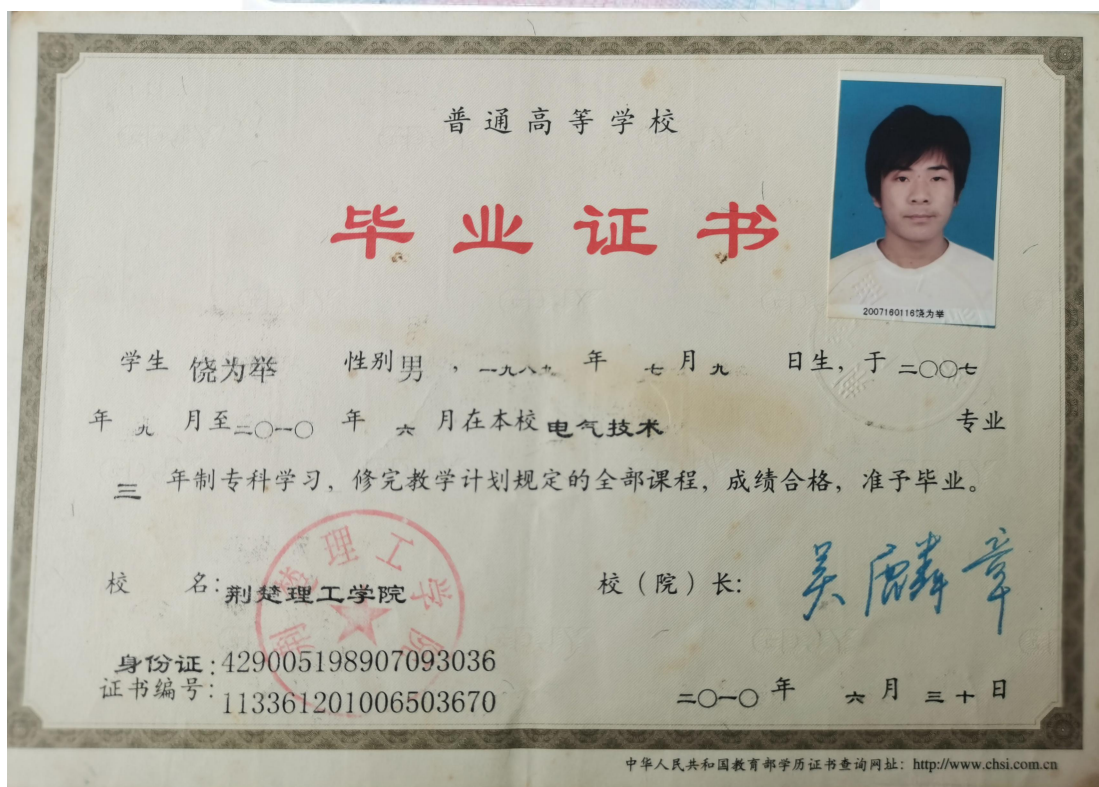 普通高等学校
毕业证书
2007160116饶为举
学生 饶为举 性别男，一九八九年 七月九日生，于二〇〇七
年九月至二〇一〇年六月在本校电气技术 专业
三年制专科学习，修完教学计划规定的全部课程，成绩合格，准予毕业。
荆楚理工学院
校 名：荆楚理工学院 校（院）长：吴麟章
身份证：429005198907093036
证书编号：113361201006503670
二〇一〇年 六月三十日
中华人民共和国教育部学历证书查询网址：http://www.chsi.com.cn